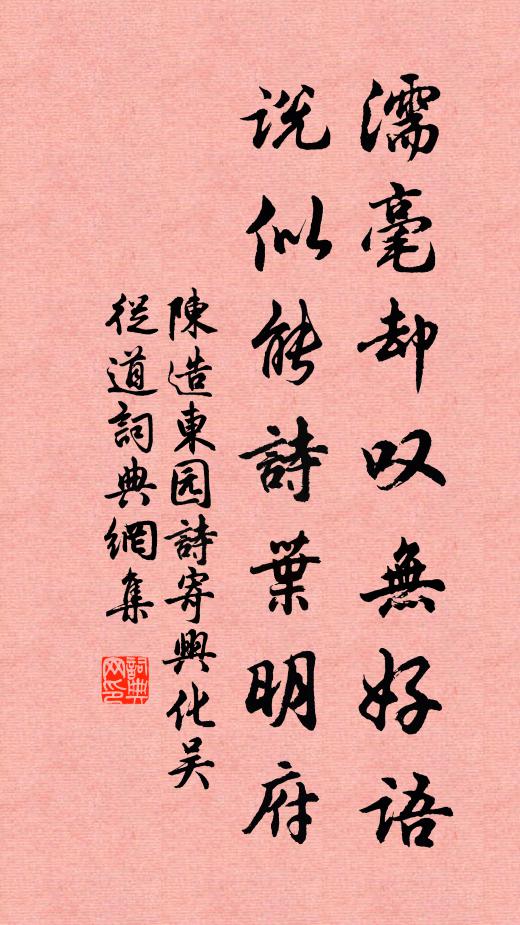 濡毫却叹無好語
说似能詩葉明府
陳造東园詩寄興化吴
從道詞典網集
詞典网印